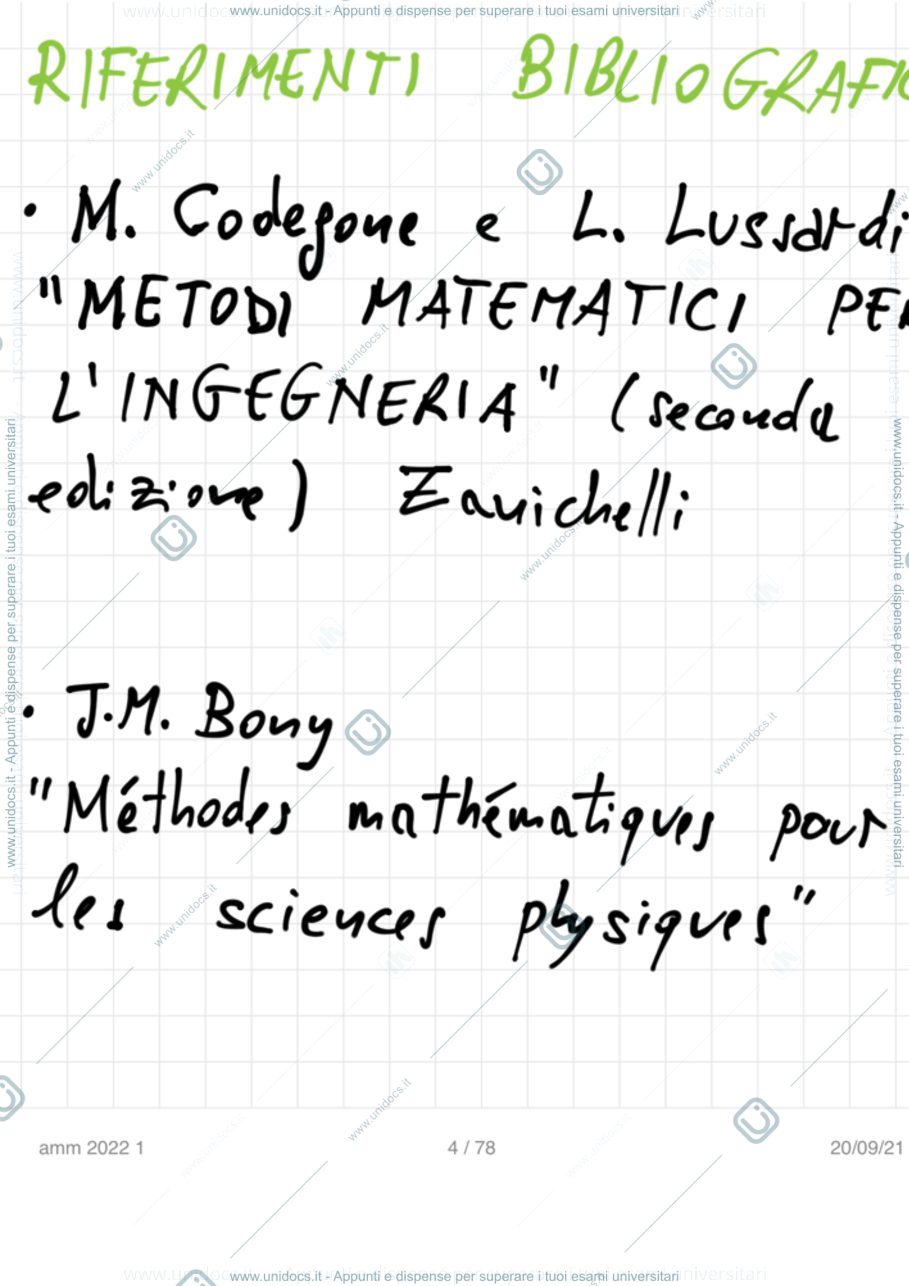 www.unidocs.it - Appunti e dispense per superare i tuoi esami universitari
RIFERIMENTI BIBLIOGRAFIC
• M. Codegone e L. Lussardi
"METODI MATEMATICI PER
L'INGEGNERIA" (seconda
edizione) Zanichelli
• J.M. Bony
"Méthodes mathématiques pour
les sciences physiques"
amm 2022 1 4 / 78 20/09/21
www.unidocs.it - Appunti e dispense per superare i tuoi esami universitari
www.unidocs.it - Appunti e dispense per superare i tuoi esami universitari
www.unidocs.it - Appunti e dispense per superare i tuoi esami universitari
www.unidocs.it
www.unidocs.it
www.unidocs.it
www.unidocs.it
www.unidocs.it
www.unidocs.it